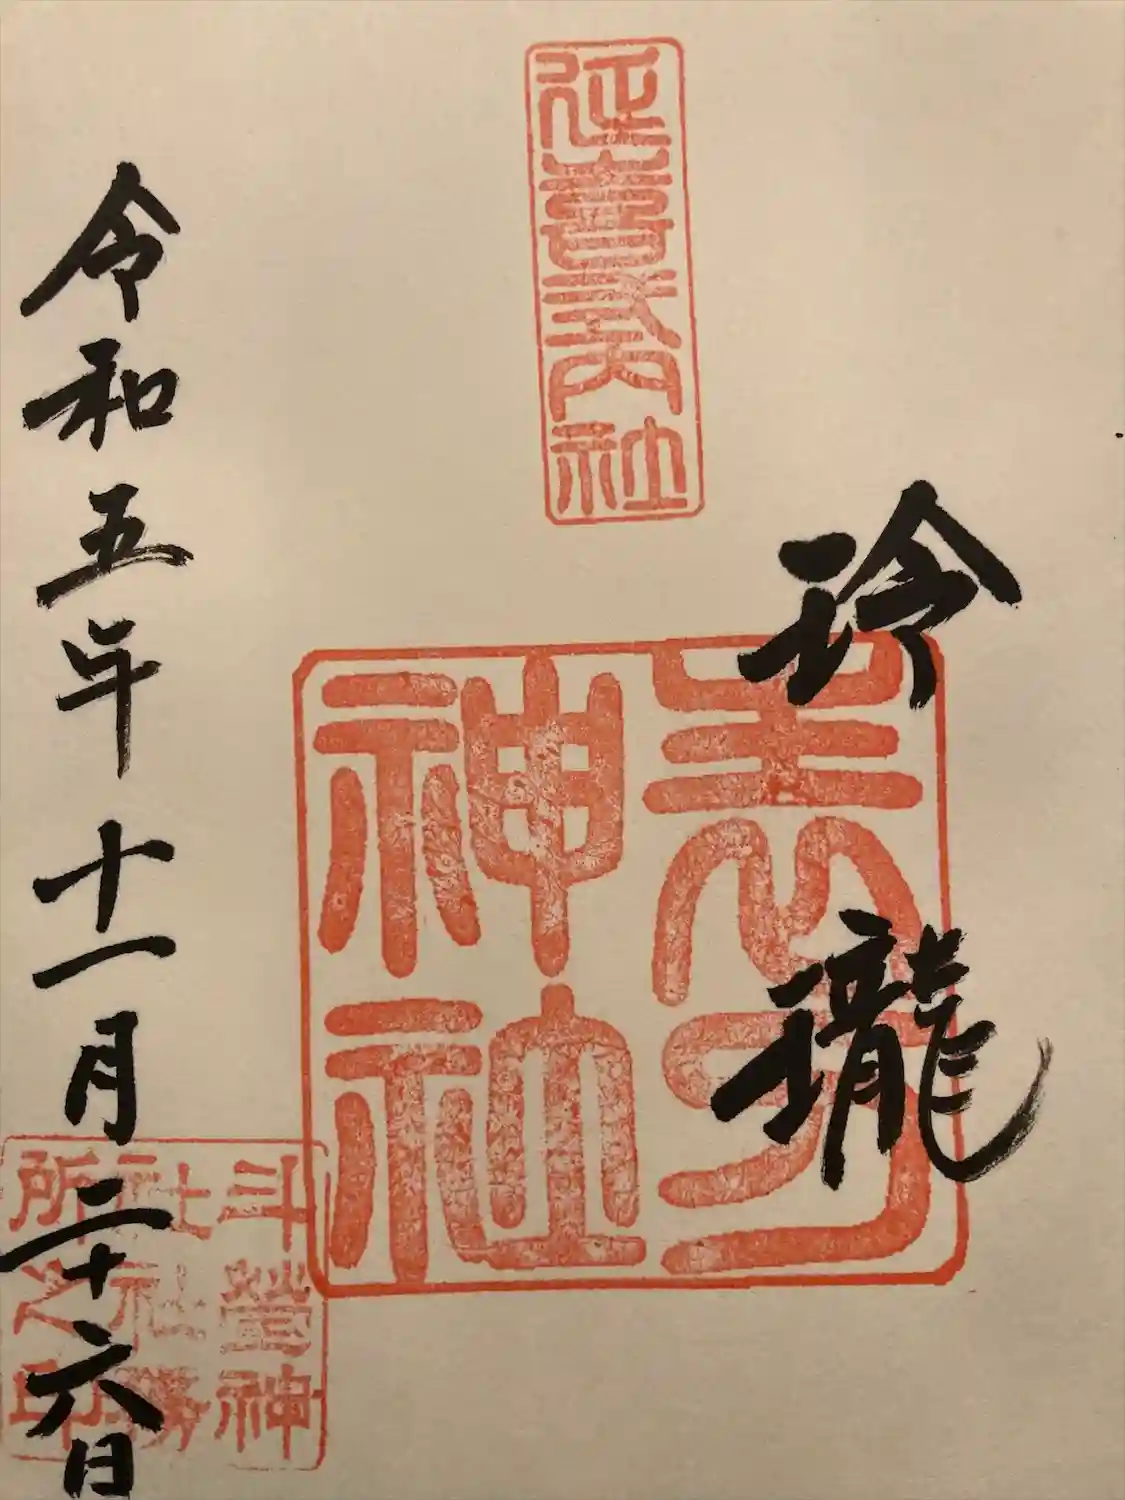 延喜式内社
玲瓏
神社
斗營神
社社務
所之印
令和五年十一月二十六日